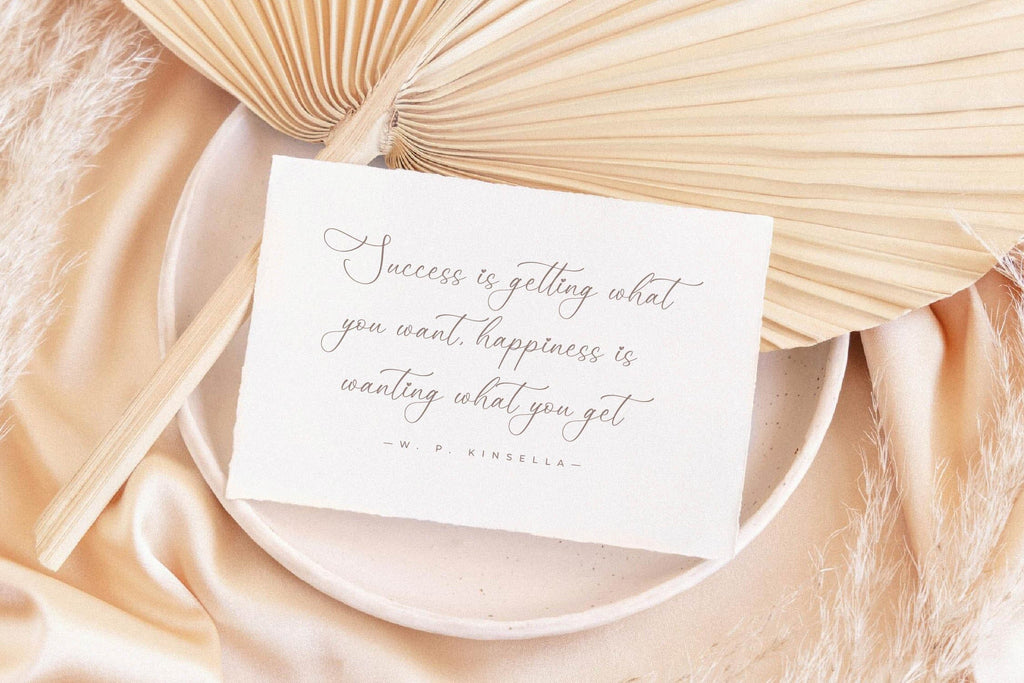 Success is getting what
you want, happiness is
wanting what you get
—W. P. KINSELLA—